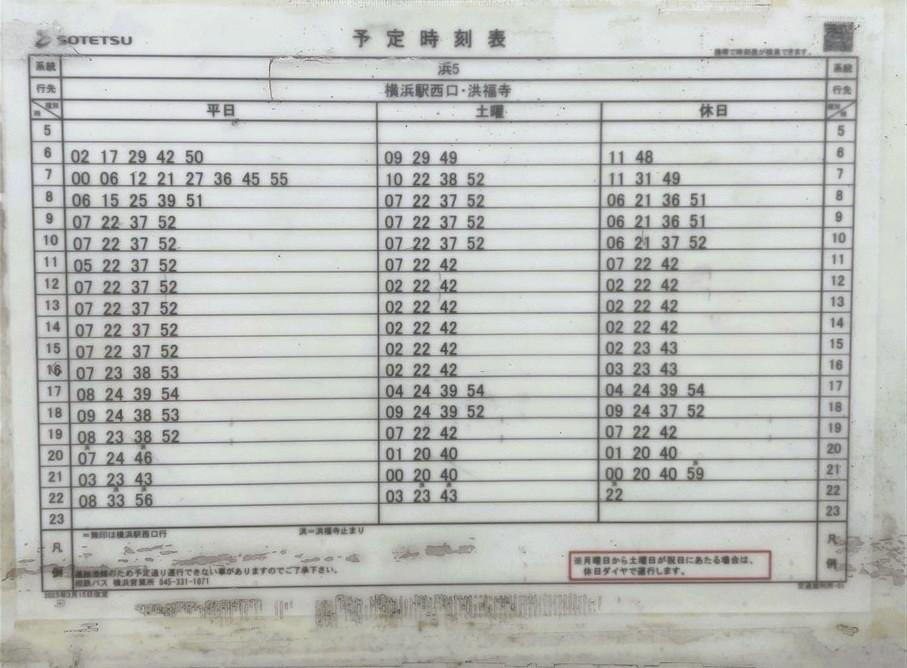 SOTETSU
予定時刻表
携帯で時刻表が検索できます。
系統 浜5 系統
行先 横浜駅西口・洪福寺 行先
時 種別 平日 土曜 休日 種別 時
5 5
6 02 17 29 42 50 09 29 49 11 48 6
7 00 06 12 21 27 36 45 55 10 22 38 52 11 31 49 7
8 06 15 25 39 51 07 22 37 52 06 21 36 51 8
9 07 22 37 52 07 22 37 52 06 21 36 51 9
10 07 22 37 52 07 22 37 52 06 21 37 52 10
11 05 22 37 52 07 22 42 07 22 42 11
12 07 22 37 52 02 22 42 02 22 42 12
13 07 22 37 52 02 22 42 02 22 42 13
14 07 22 37 52 02 22 42 02 22 42 14
15 07 22 37 52 02 22 42 02 23 43 15
16 07 23 38 53 02 22 42 03 23 43 16
17 08 24 39 54 04 24 39 54 04 24 39 54 17
18 09 24 38 53 09 24 39 52 09 24 37 52 18
19 08 23 38 52 07 22 42 07 22 42 19
20 07 24 46 01 20 40 01 20 40 20
21 03 23 43 00 20 40 00 20 40 59 21
22 08 33 56 03 23 43 22 22
23 23
凡例 =無印は横浜駅西口行 洪=洪福寺止まり 凡例
道路混雑のため予定通り運行できない事がありますのでご了承下さい。
相鉄バス 横浜営業所 045-331-1071
※月曜日から土曜日が祝日にあたる場合は、
休日ダイヤで運行します。